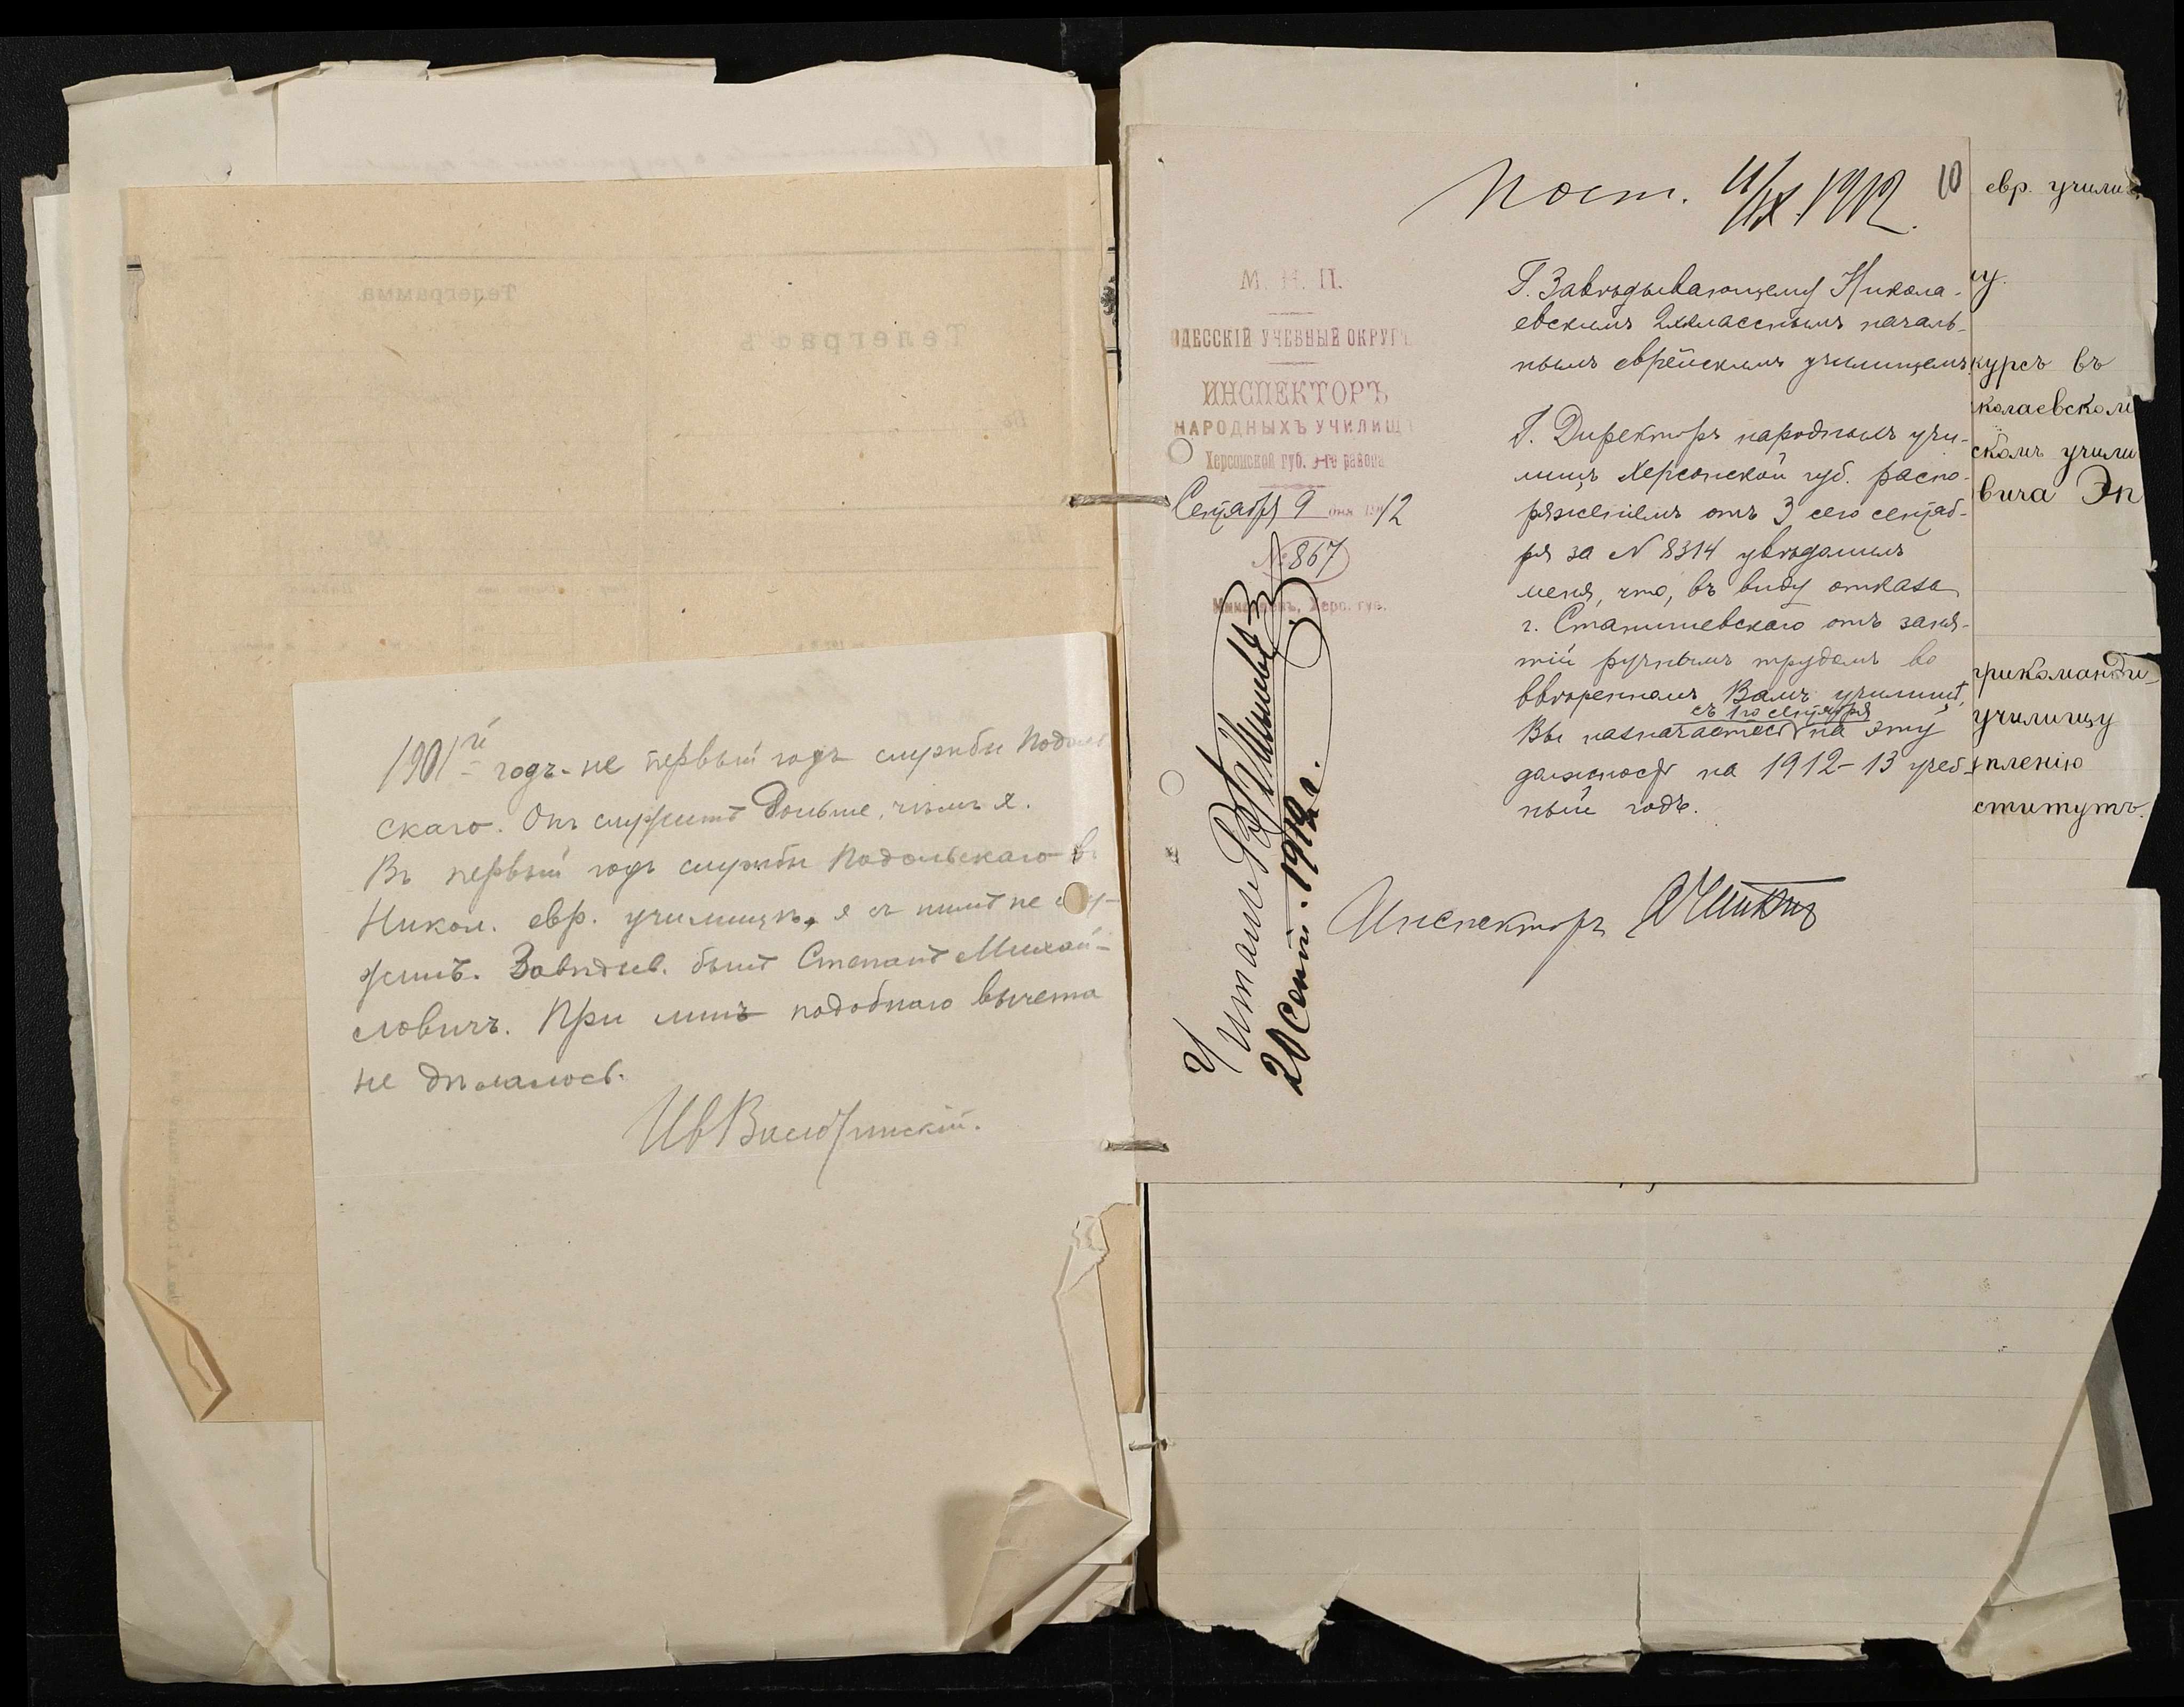 Телеграмма
Телеграфъ
1901й годъ - не первый годъ службы Подоль
скаго. Онъ служитъ дольше, чѣмъ я.
Въ первый годъ службы Подольскаго въ
Никол. евр. училищѣ, я съ нимъ не слу-
жилъ. Завѣдыв. былъ Степанъ Михай-
ловичъ. При мнѣ подобнаго вычета
не дѣлалось.
Пост. 11/IX 1912.
10
М. Н. П.
ОДЕССКІЙ УЧЕБНЫЙ ОКРУГЪ
ИНСПЕКТОРЪ
НАРОДНЫХЪ УЧИЛИЩ
Херсонской губ. го района
Сентября 9 дня 1912
№ 867
Херс. губ.
Г. Завѣдывающему Никола-
евскимъ 2хклассным началь-
нымъ еврейскимъ училищемъ
Г. Директоръ народныхъ учи-
лищъ Херсонской губ. распо-
ряженіемъ отъ 3 сего сентяб-
ря за N 8314 увѣдомилъ
меня, что, въ виду отказа
г. Станишевскаго отъ заня-
тій ручнымъ трудомъ во
ввѣренномъ Вамъ училищѣ,
съ 1го сентября
Вы назначаетесь на эту
должность на 1912-13 учеб-
ный годъ.
Инспекторъ
Читалъ
20 Сент. 1912 г.
евр. учили
су.
курсъ въ
колаевском
скомъ учили
вича Эп
прикоманди
училищу
пленію
ститутъ.